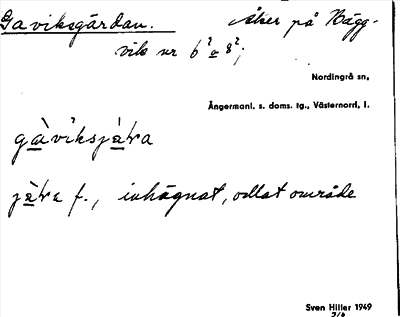 Gaviksgärdan. Åker på Häggvik nr 6² o 8²;
Nordingrå sn,
Ångermanl. s. doms. tg., Västernorrl. l.
gàviksjàra
jàra f., inhägnat, odlat område
Sven Hiller 1949
2/6